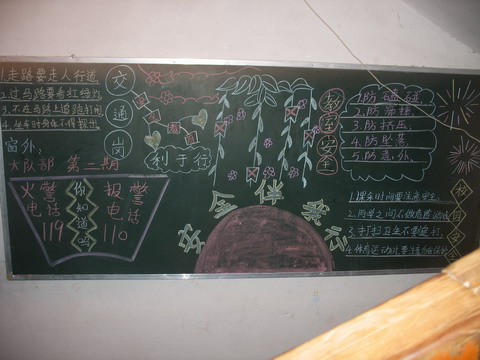 1.走路要走人行道
2.过马路要看红绿灯
3.不在马路上追跑打闹
4.坐车时身体不探出
窗外,
大队部 第二期
交通岗
利于行
火警电话119
你知道吗
报警电话110
安全伴我行
教室安全
1.防磕碰,
2.防滑摔,
3.防挤压,
4.防坠落,
5.防意外,
1.课余时间要注意安全,
2.同学之间不做危险游戏
3.打扫卫生不要追打,
4.体育运动时要注意自我保护
校园安全